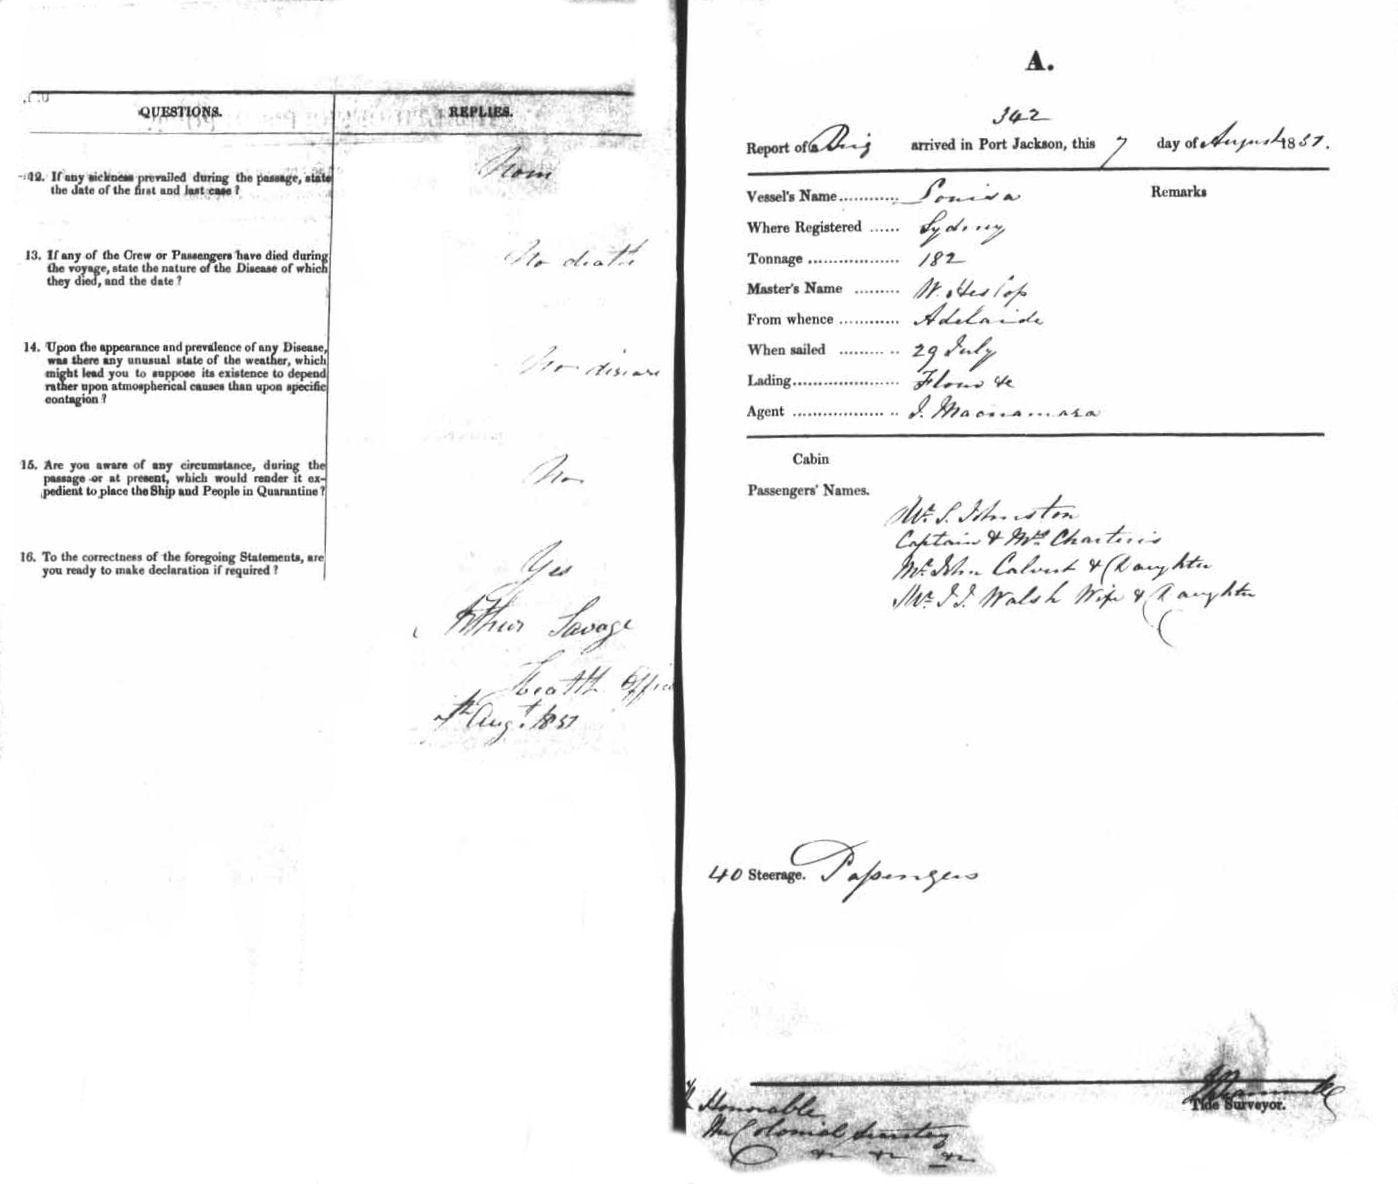 QUESTIONS.
REPLIES.
12. If any sickness prevailed during the passage, state
the date of the first and last case ?
None
13. If any of the Crew or Passengers have died during
the voyage, state the nature of the Disease of which
they died, and the date ?
No death
14. Upon the appearance and prevalence of any Disease,
was there any unusual state of the weather, which
might lead you to suppose its existence to depend
rather upon atmospherical causes than upon specific
contagion ?
No disease
15. Are you aware of any circumstance, during the
passage or at present, which would render it ex-
pedient to place the Ship and People in Quarantine ?
No
16. To the correctness of the foregoing Statements, are
you ready to make declaration if required ?
Yes
Arthur Savage
Health Officer
7th Augt. 1851
A.
342
Report of a Brig arrived in Port Jackson, this 7 day of August 1851.
Vessel's Name............ Louisa
Remarks
Where Registered ...... Sydney
Tonnage .................. 182
Master's Name ......... W. Heslop
From whence ............ Adelaide
When sailed ......... .. 29 July
Lading..................... Flour &c
Agent .................. .. I. Macnamara
Cabin
Passengers' Names.
Mr. S. Johnston
Captain & Mrs Charteris
Mr. John Calvert & Daughter
Mr. J. J. Walsh Wife & Daughter
40 Steerage. Passengers
Tide Surveyor.
Honorable
The Colonial Secretary
&c &c &c